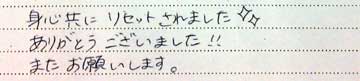 身心共に リセットされました✧✧
ありがとうございました!!
またお願いします。